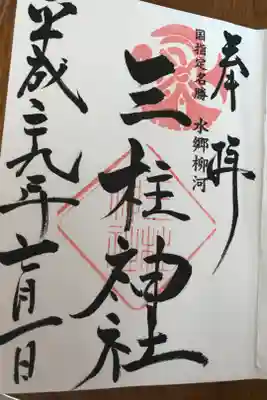 奉拝
国指定名勝 水郷柳河
三柱神社
平成二九年六月一日